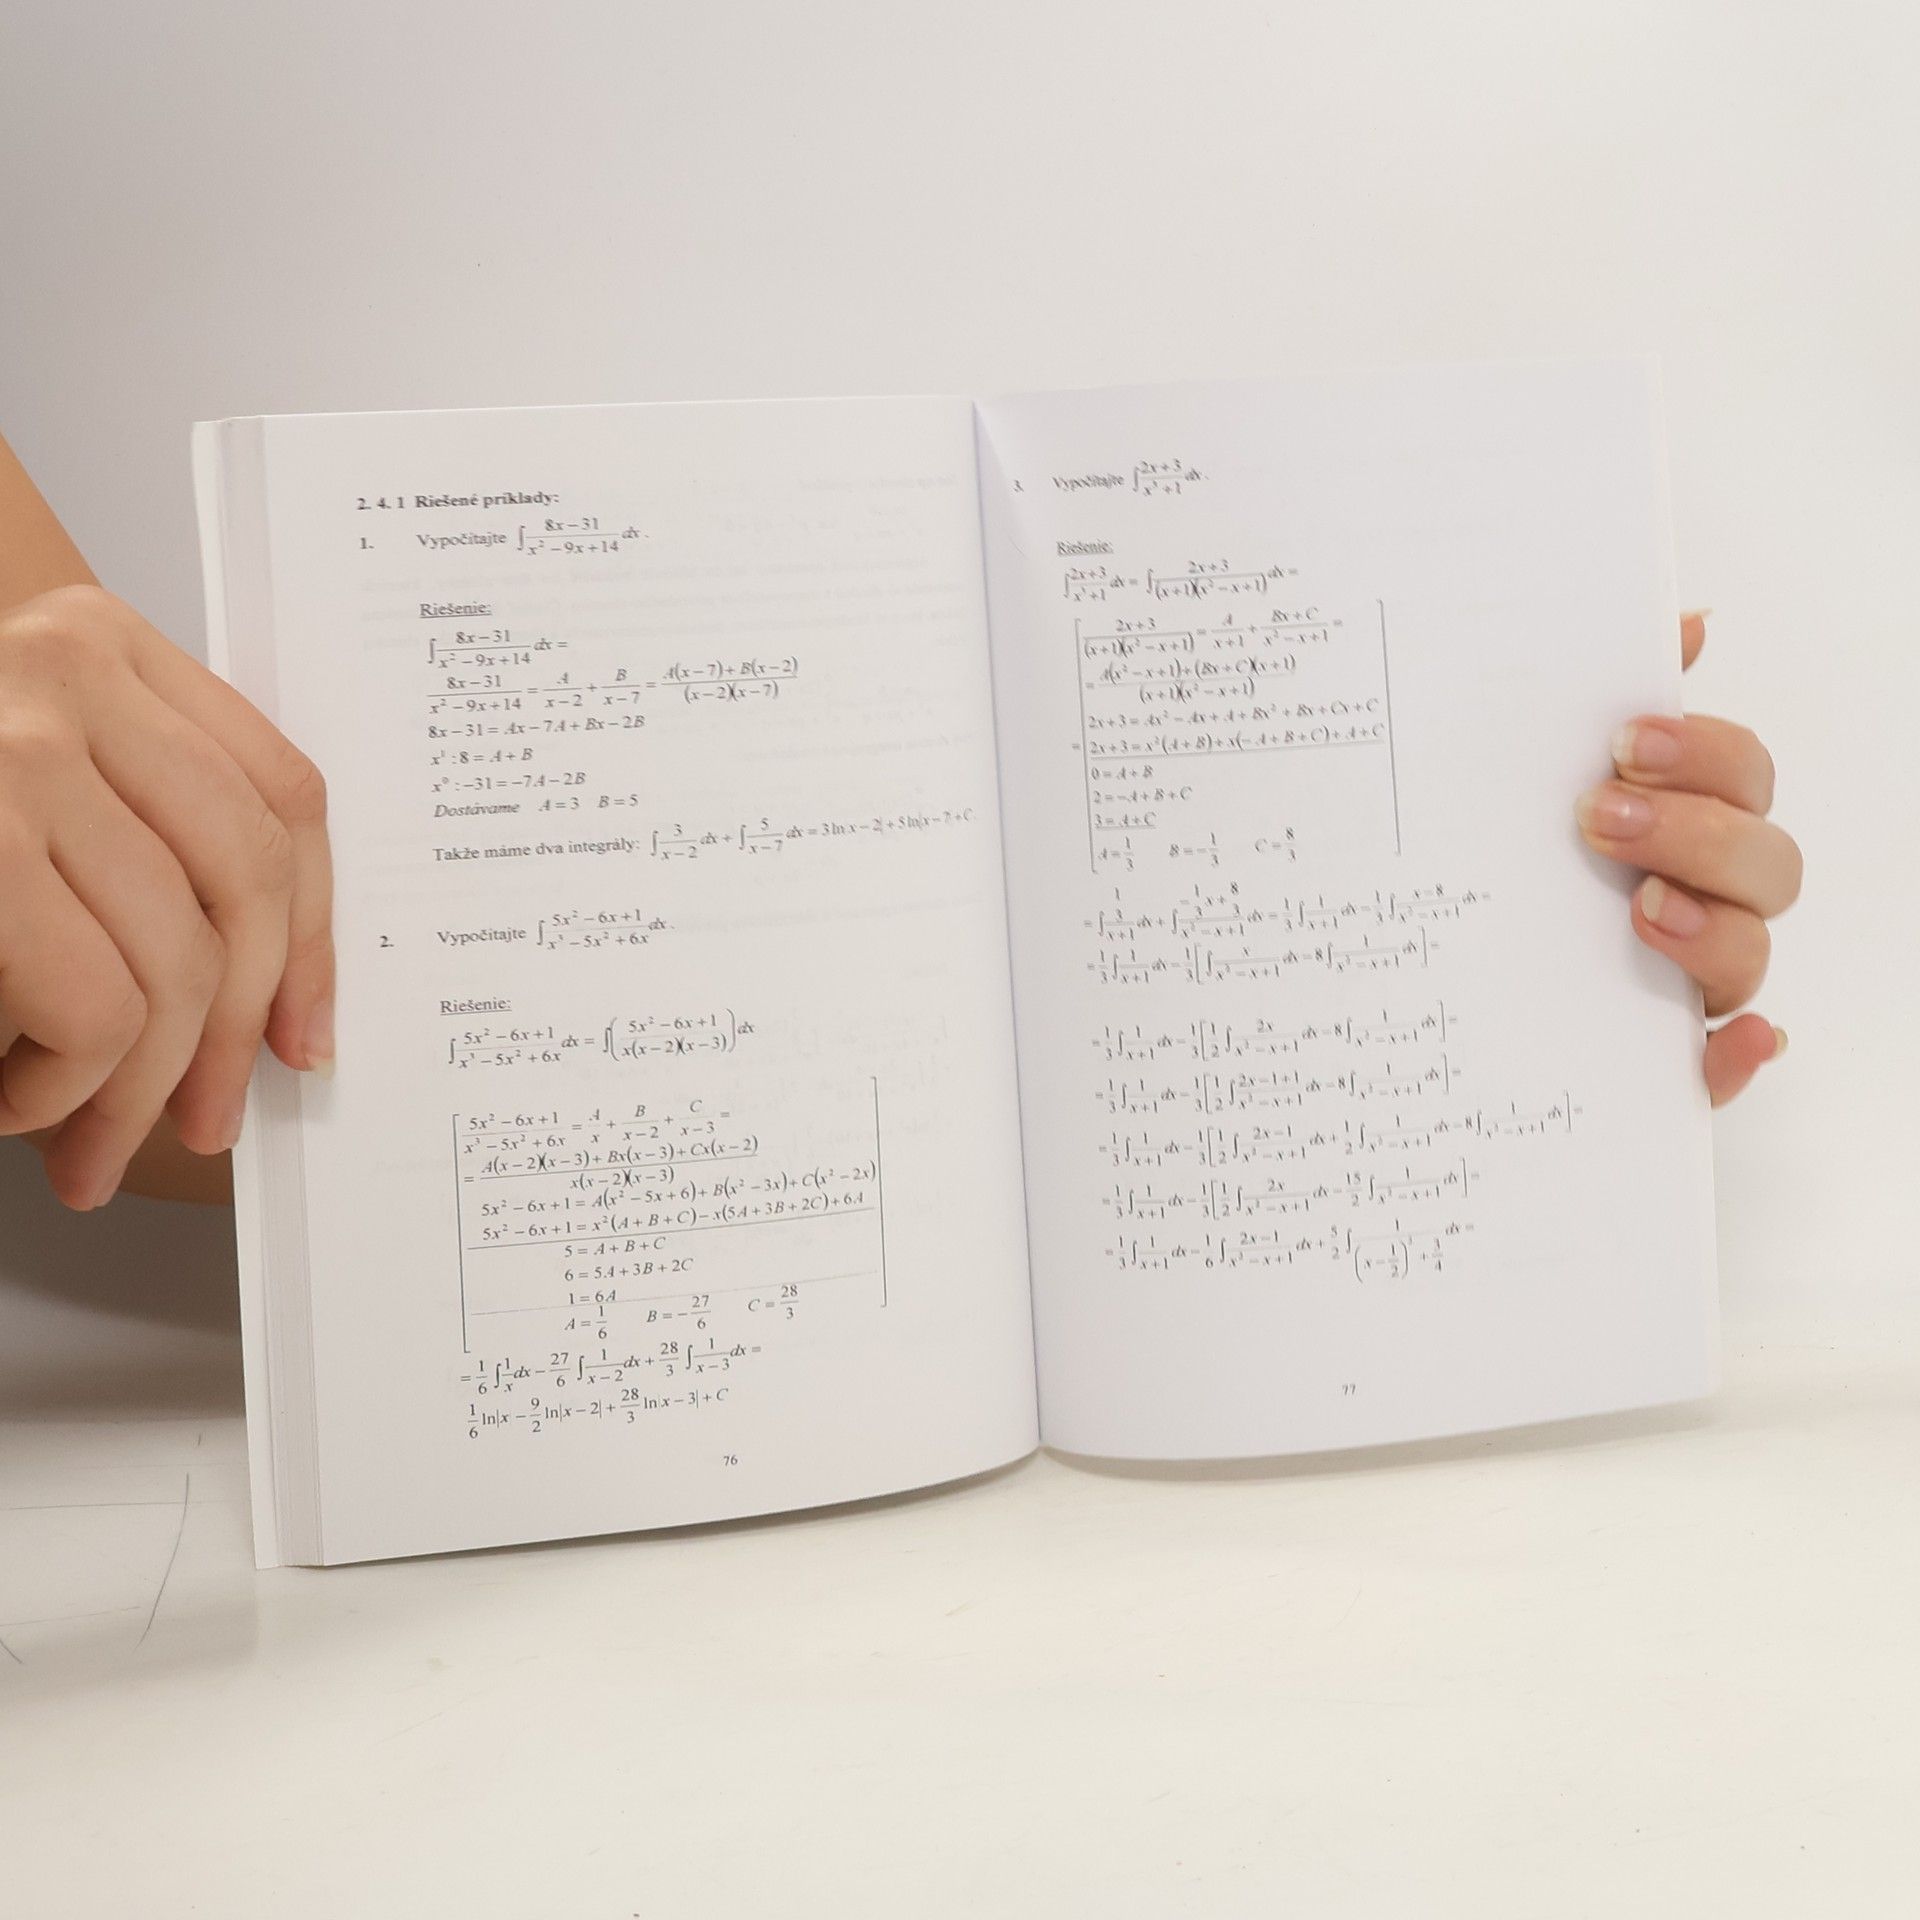 2. 4. 1 Riešené príklady:
1. Vypočítajte ∫ (8x−31)/(x²−9x+14) dx.
Riešenie:
∫ (8x−31)/(x²−9x+14) dx =
(8x−31)/(x²−9x+14) = A/(x−2) + B/(x−7) = (A(x−7)+B(x−2))/((x−2)(x−7))
8x−31 = Ax−7A+Bx−2B
x¹ :8 = A+B
x⁰ :−31 = −7A−2B
Dostávame A = 3 B = 5
Takže máme dva integrály: ∫ 3/(x−2) dx + ∫ 5/(x−7) dx = 3 ln|x−2|+5 ln|x−7+C.
2. Vypočítajte ∫ (5x²−6x+1)/(x³−5x²+6x) dx.
Riešenie:
∫ (5x²−6x+1)/(x³−5x²+6x) dx = ∫( (5x²−6x+1)/(x(x−2)(x−3)) ) dx
[ (5x²−6x+1)/(x³−5x²+6x) = A/x + B/(x−2) + C/(x−3) =
= (A(x−2)(x−3)+Bx(x−3)+Cx(x−2))/(x(x−2)(x−3))
5x²−6x+1 = A(x²−5x+6)+B(x²−3x)+C(x²−2x)
5x²−6x+1 = x²(A+B+C)−x(5A+3B+2C)+6A
5 = A+B+C
6 = 5A+3B+2C
1 = 6A
A = 1/6 B = −27/6 C = 28/3 ]
= 1/6 ∫ 1/x dx − 27/6 ∫ 1/(x−2) dx + 28/3 ∫ 1/(x−3) dx =
1/6 ln|x − 9/2 ln|x−2| + 28/3 ln|x−3|+C
76
3. Vypočítajte ∫ (2x+3)/(x³+1) dx.
Riešenie:
∫ (2x+3)/(x³+1) dx = ∫ (2x+3)/((x+1)(x²−x+1)) dx =
[ (2x+3)/((x+1)(x²−x+1)) = A/(x+1) + (Bx+C)/(x²−x+1) =
= (A(x²−x+1)+(Bx+C)(x+1))/((x+1)(x²−x+1))
2x+3 = Ax²−Ax+A+Bx²+Bx+Cx+C
= 2x+3 = x²(A+B)+x(−A+B+C)+A+C
0 = A+B
2 = −A+B+C
3 = A+C
A = 1/3 B = −1/3 C = 8/3 ]
= ∫ (1/3)/(x+1) dx + ∫ (−1/3 x + 8/3)/(x²−x+1) dx = 1/3 ∫ 1/(x+1) dx − 1/3 ∫ (x−8)/(x²−x+1) dx =
= 1/3 ∫ 1/(x+1) dx − 1/3 [ ∫ x/(x²−x+1) dx − 8∫ 1/(x²−x+1) dx ] =
= 1/3 ∫ 1/(x+1) dx − 1/3 [ 1/2 ∫ 2x/(x²−x+1) dx − 8∫ 1/(x²−x+1) dx ] =
= 1/3 ∫ 1/(x+1) dx − 1/3 [ 1/2 ∫ (2x−1+1)/(x²−x+1) dx − 8∫ 1/(x²−x+1) dx ] =
= 1/3 ∫ 1/(x+1) dx − 1/3 [ 1/2 ∫ (2x−1)/(x²−x+1) dx + 1/2 ∫ 1/(x²−x+1) dx − 8∫ 1/(x²−x+1) dx ] =
= 1/3 ∫ 1/(x+1) dx − 1/3 [ 1/2 ∫ 2x/(x²−x+1) dx − 15/2 ∫ 1/(x²−x+1) dx ] =
= 1/3 ∫ 1/(x+1) dx − 1/6 ∫ (2x−1)/(x²−x+1) dx + 5/2 ∫ 1/((x−1/2)²+3/4) dx =
77